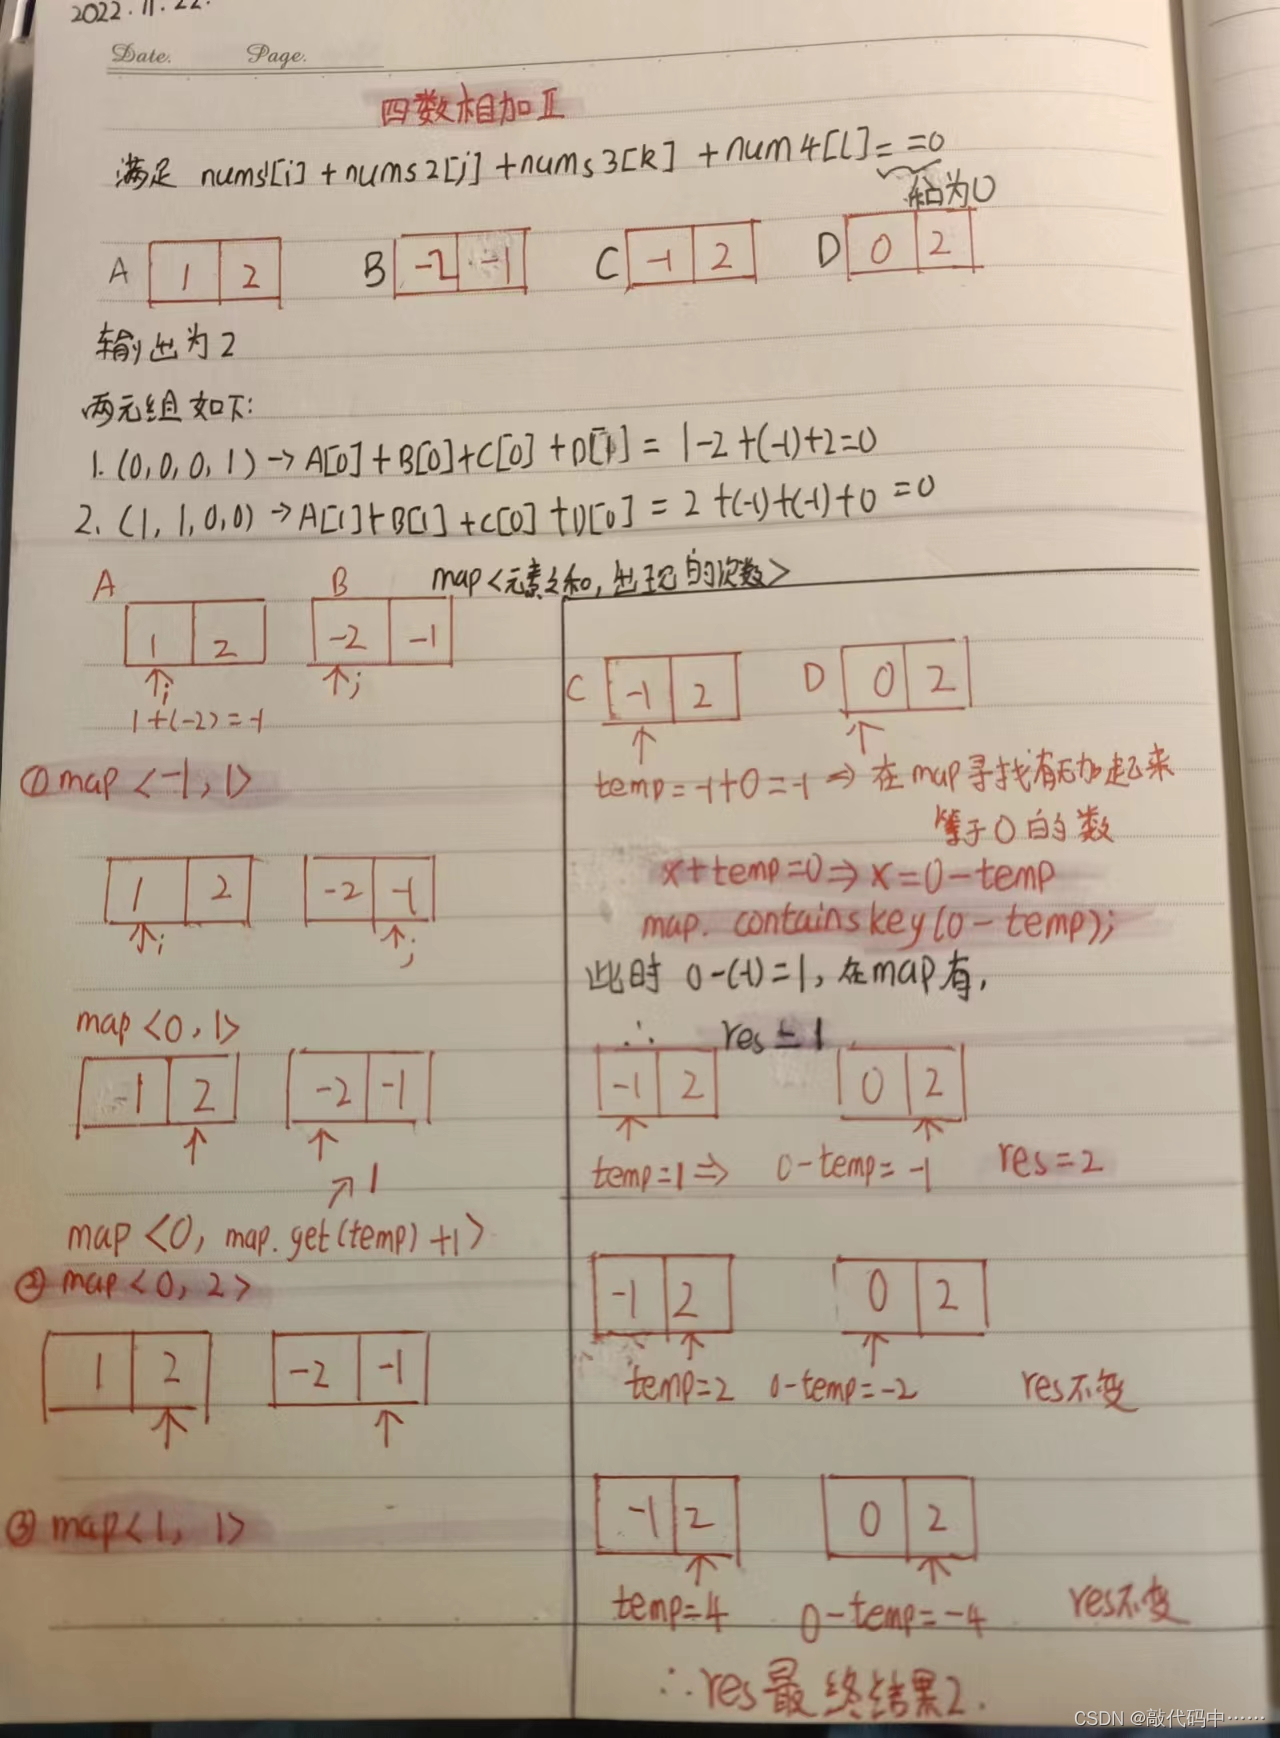 2022.11.22.
Date. Page.
四数相加Ⅱ
满足 nums1[i] + nums2[j] + nums3[k] + num4[l] = =0
和为0
A 1 2 B -2 -1 C -1 2 D 0 2
输出为2
两元组如下:
1. (0,0,0,1) → A[0]+B[0]+C[0]+D[1] = 1-2+(-1)+2=0
2. (1,1,0,0) → A[1]+B[1]+C[0]+D[0] = 2+(-1)+(-1)+0=0
map<元素之和,出现的次数>
A B
1 2 -2 -1
↑i ↑j
1+(-2)=-1
① map<-1, 1>
1 2 -2 -1
↑i ↑j
map<0, 1>
-1 2 -2 -1
↑ ↑
↗1
map<0, map.get(temp)+1>
② map<0, 2>
1 2 -2 -1
↑ ↑
③ map<1, 1>
C -1 2 D 0 2
↑ ↑
temp=-1+0=-1 ⇒ 在map寻找有无加起来
等于0的数
x+temp=0 ⇒ x=0-temp
map.containskey(0-temp);
此时 0-(-1)=1,在map有,
∴ res=1
-1 2 0 2
↑ ↑
temp=1 ⇒ 0-temp=-1 res=2
-1 2 0 2
↑ ↑
temp=2 0-temp=-2 res不变
-1 2 0 2
↑ ↑
temp=4 0-temp=-4 res不变
∴res最终结果2.
CSDN @敲代码中……